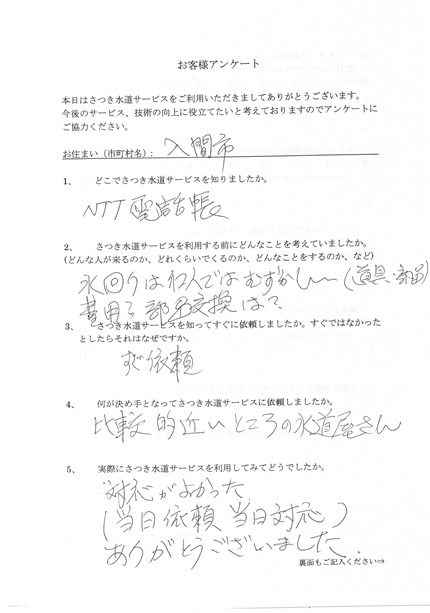 お客様アンケート
本日はさつき水道サービスをご利用いただきましてありがとうございます。
今後のサービス、技術の向上に役立てたいと考えておりますのでアンケートに
ご協力ください。
お住まい(市町村名): 入間市
1、 どこでさつき水道サービスを知りましたか。
NTT電話帳
2、 さつき水道サービスを利用する前にどんなことを考えていましたか。
(どんな人が来るのか、どれくらいでくるのか、どんなことをするのか、など)
水回りは わ人では むずかしい (道具・部品)
費用? 部品交換は?
3、 さつき水道サービスを知ってすぐに依頼しましたか。すぐではなかった
としたらそれはなぜですか。
すぐ依頼
4、 何が決め手となってさつき水道サービスに依頼しましたか。
比較的近いところの水道屋さん
5、 実際にさつき水道サービスを利用してみてどうでしたか。
対応がよかった
(当日依頼 当日対応)
ありがとうございました。
裏面もご記入ください⇒